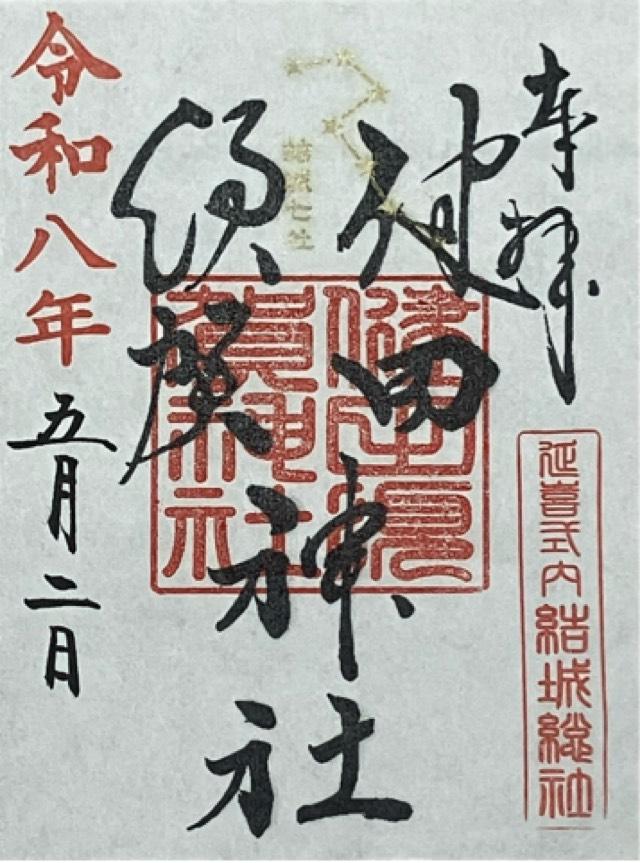 奉拝
延喜式内結城総社
健田
須賀
神社
結城七社
健田須
賀神社
令和八年五月二日